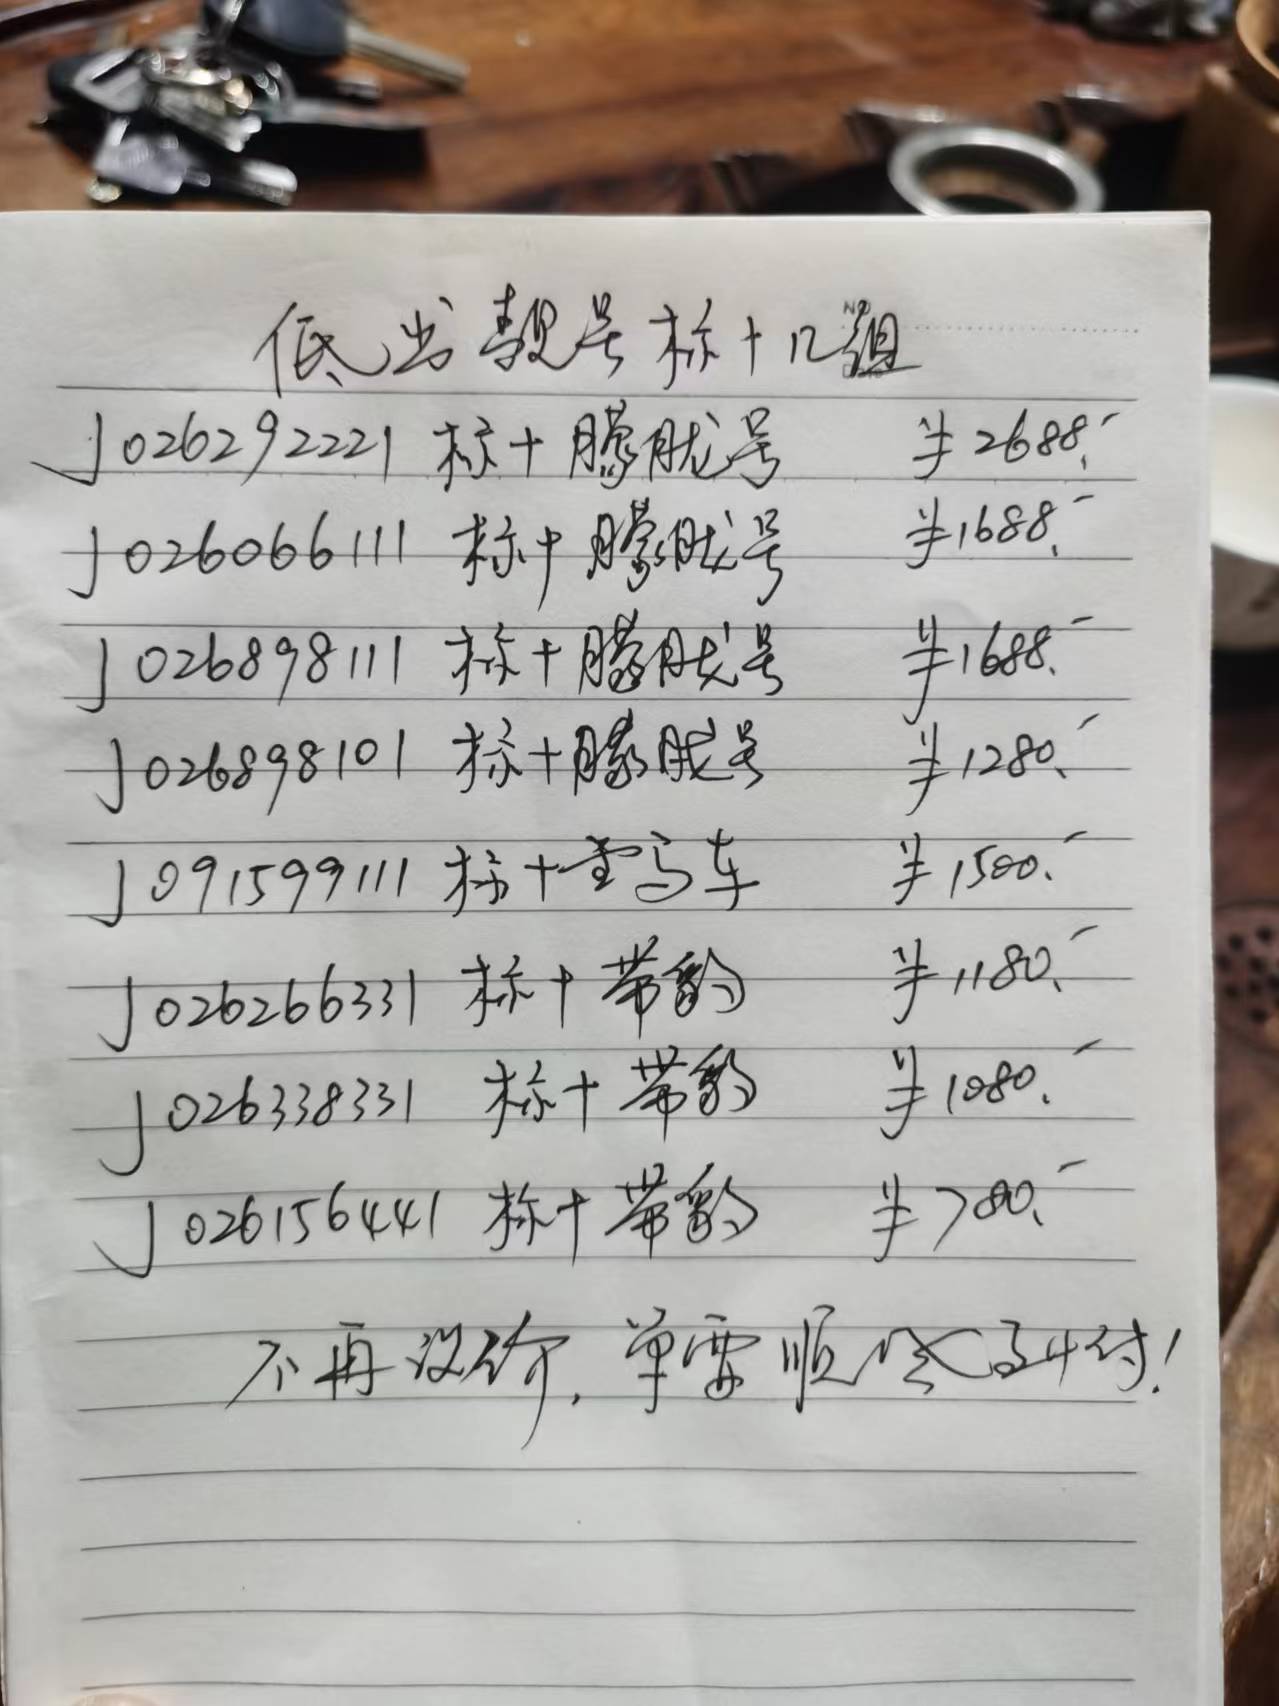 低出靓号标十几组
J026292221 标十朦胧号 ¥2688.-
J026066111 标十朦胧号 ¥1688.-
J026898111 标十朦胧号 ¥1688.-
J026898101 标十朦胧号 ¥1280.-
J091599111 标十 马车 ¥1500.-
J026266331 标十带豹 ¥1180.-
J026338331 标十带豹 ¥1080.-
J026156441 标十带豹 ¥780.-
不再议价,单要顺风到付!